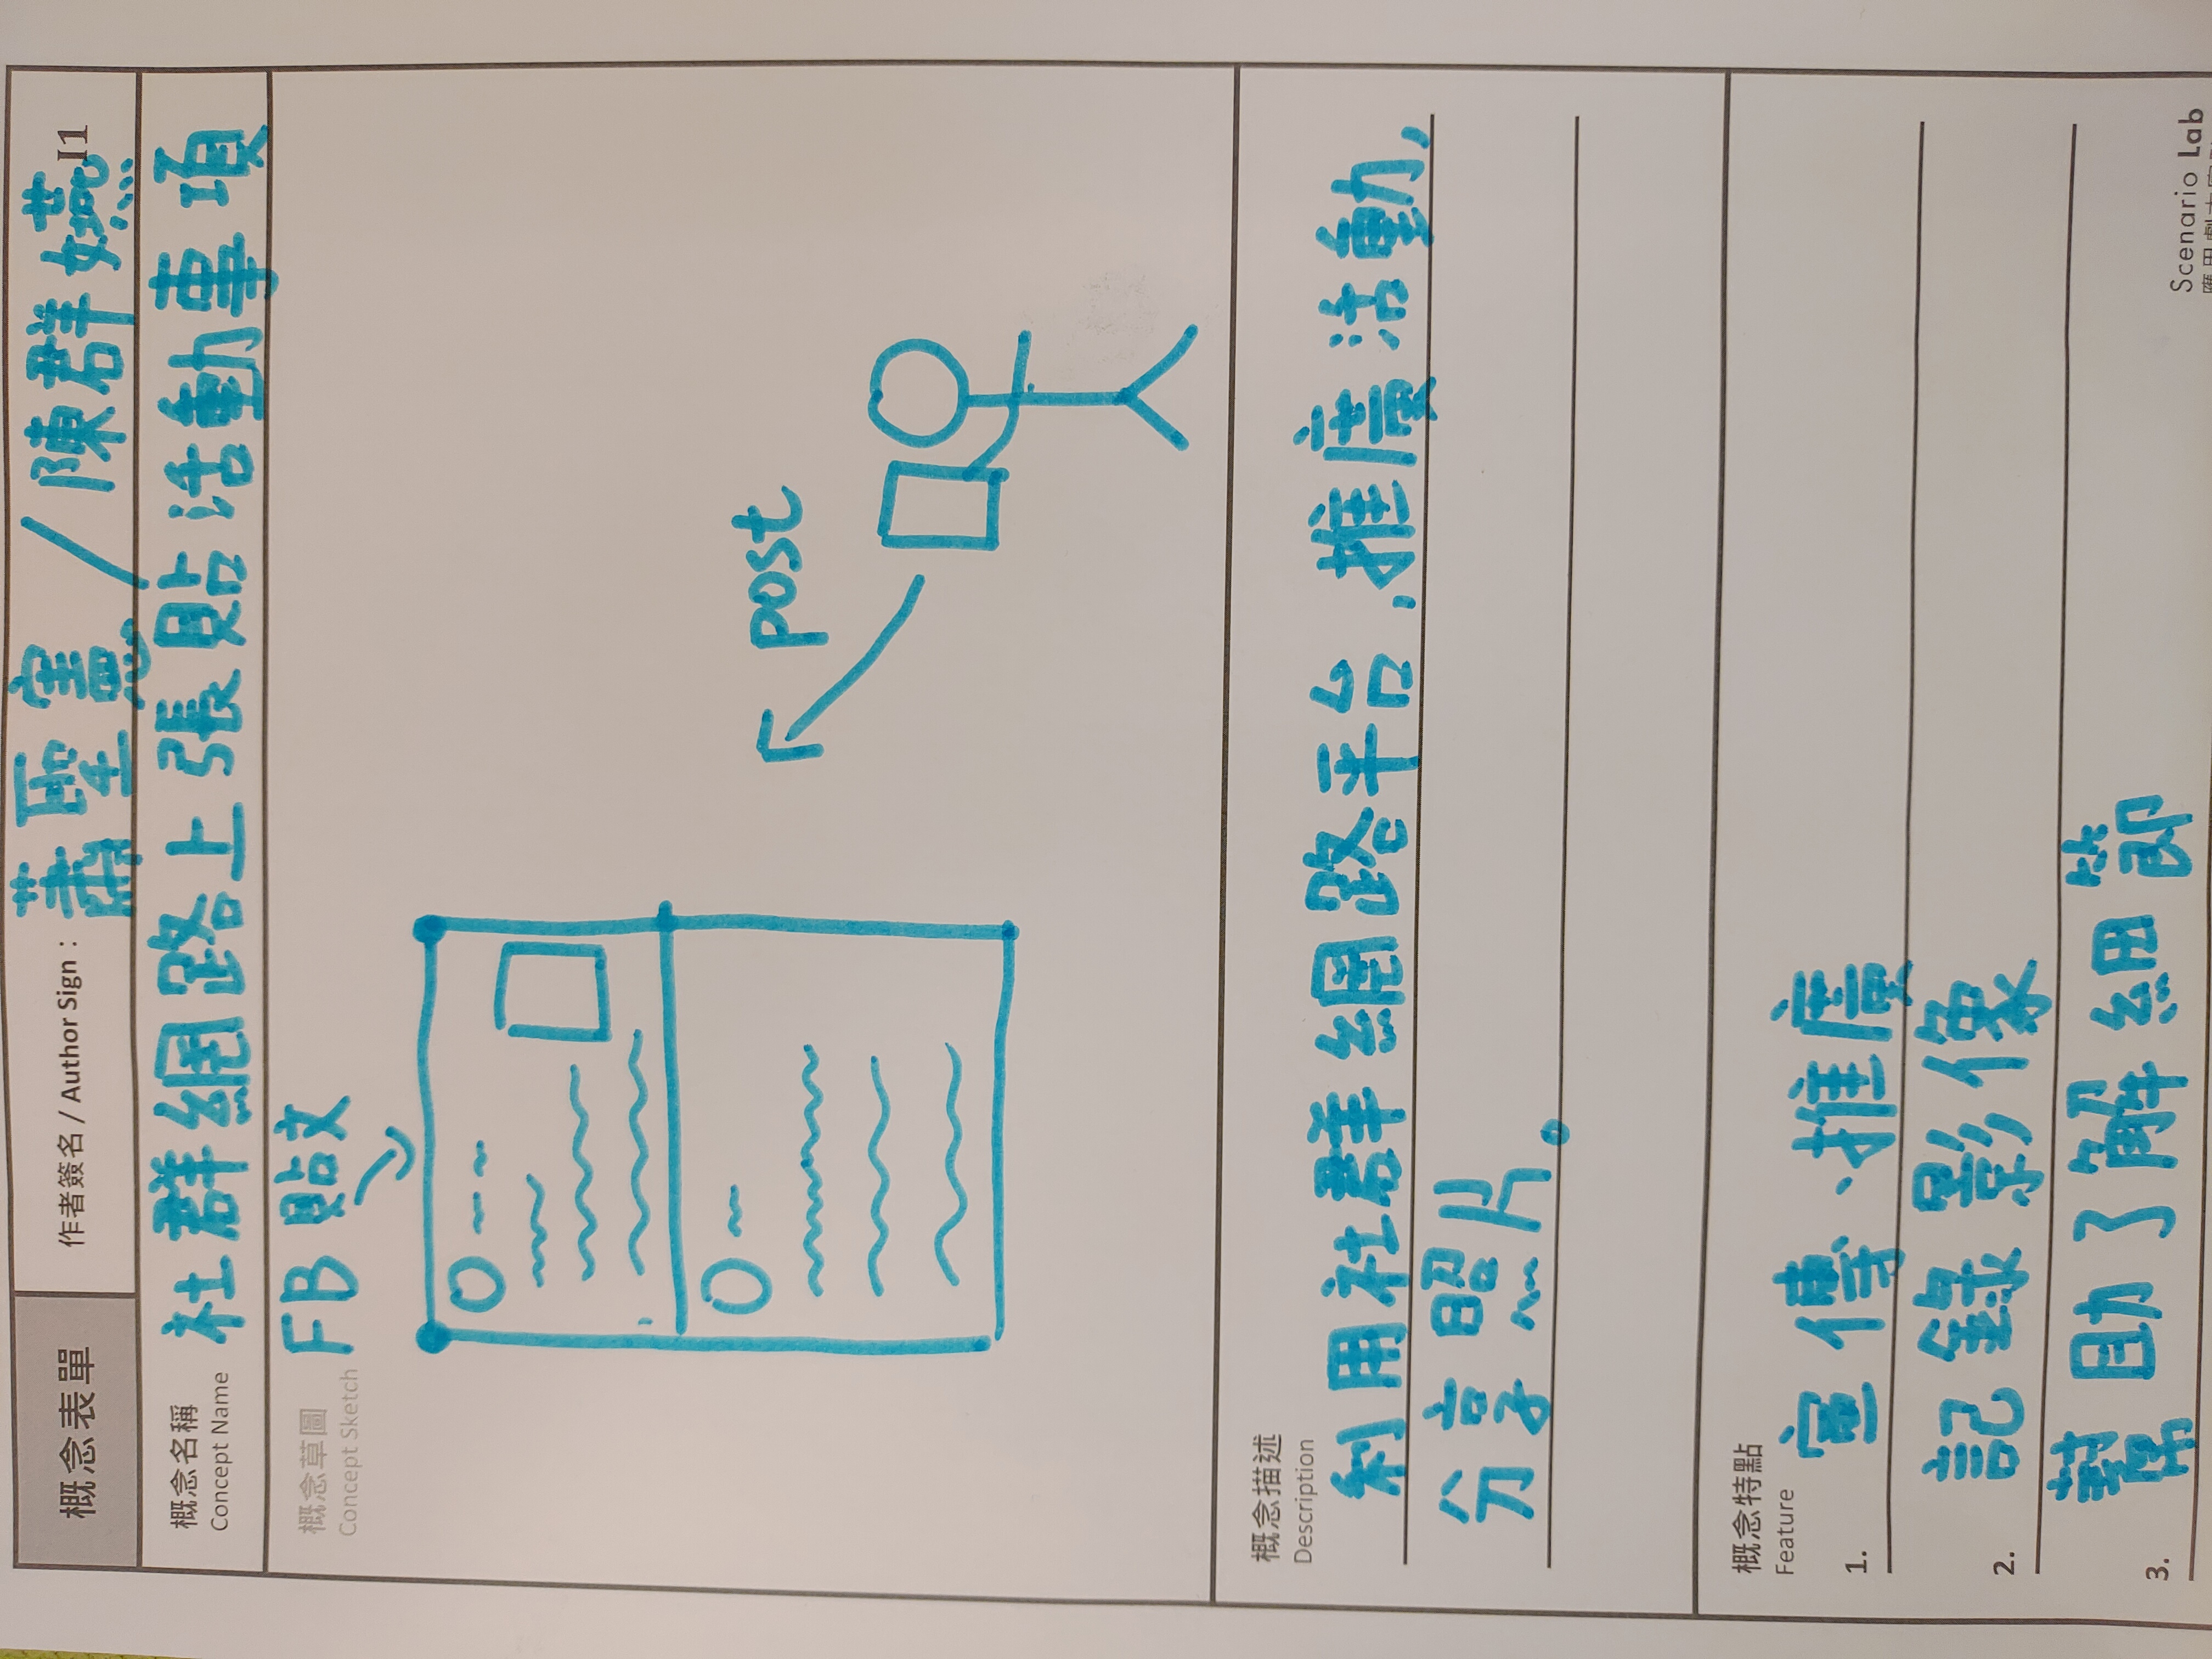 概念表單
作者簽名 / Author Sign：蕭聖憲/陳群嬿
I1
概念名稱
Concept Name
社群網路上張貼活動事項
概念草圖
Concept Sketch
FB 貼文
post
概念描述
Description
利用社群網路平台,推廣活動,
分享照片。
概念特點
Feature
1. 宣傳、推廣
2. 記錄影像
3. 幫助了解細節
Scenario Lab